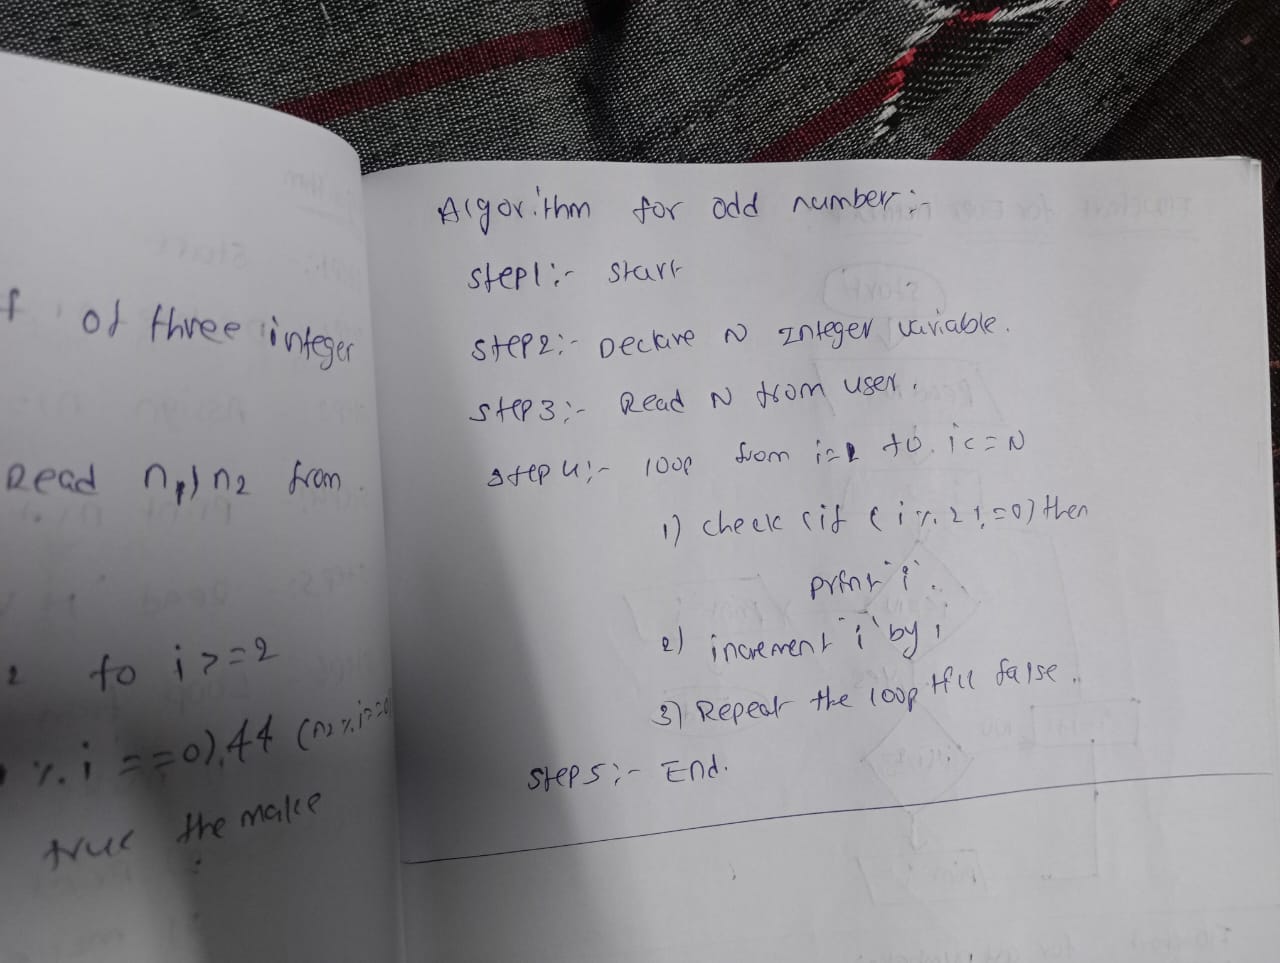 of three integer
Read n1, n2 from
to i >= 2
% i == 0) && (n2 % i == 0
true the make
Algorithm for odd number :-
Step1 :- Start
Step2 :- Declare N Integer variable.
Step3 :- Read N from user.
Step4 :- loop from i=1 to i<=N
1) check (if (i % 2 != 0) then
print "i".
2) increment "i" by 1
3) Repeat the loop till false.
Step5 :- End.